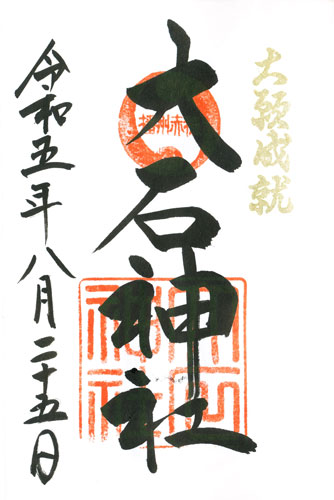 大願成就
播州赤穂
大石神社
令和五年八月二十五日